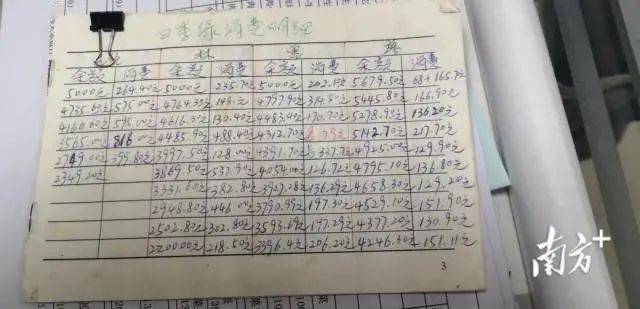 四季绿消费明细
林 惠
余额 消费 余额 消费 余额 消费 余额 消费
5000元 264.40元 5000元 235.7元 5000元 202.1元 5679.50元 68+165.7元
4735.60元 575.00元 4764.3元 148元 4797.9元 314.50元 5445.80元 166.90元
4160.60元 595.00元 4616.3元 130.40元 4483.40元 170.70元 5278.90元 136.20元
3565.00元 816.00元 4485.90元 488.40元 4312.70元 5142.70元 217.70元
2749.00元 399.80元 3997.50元 128.00元 4391.70元 337.7元 4925.00元 129.90元
2349.20元 3869.50元 537.90元 4054.00元 126.72元 4795.10元 136.80元
3331.60元 382.80元 3927.28元 136.29元 4658.30元 129.20元
2948.80元 446.00元 3790.99元 197.30元 4529.10元 151.90元
2502.80元 302.80元 3593.69元 197.29元 4377.20元 130.90元
2200.00元 218.50元 3396.4元 206.20元 4246.30元 151.11元
3
南方+